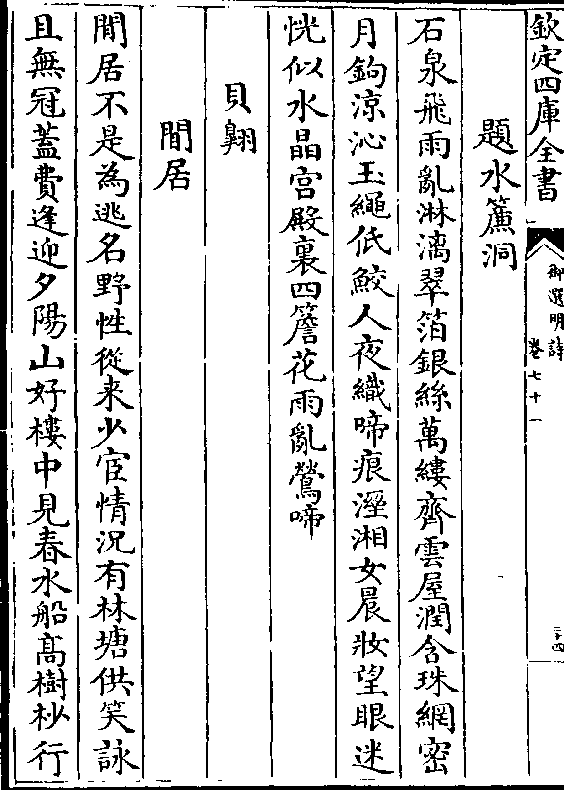 欽定四庫全書
御選明詩
卷七十一
二十四
題水簾洞
石泉飛雨亂淋漓翠箔銀絲萬縷齊雲屋潤含珠網密
月鉤涼沁玉繩低鮫人夜織啼痕溼湘女晨妝望眼迷
恍似水晶宮殿裏四簷花雨亂鶯啼
貝翺
閒居
閒居不是為逃名野性從来少宦情況有林塘供笑詠
且無冠蓋費逢迎夕陽山好樓中見春水船髙樹杪行